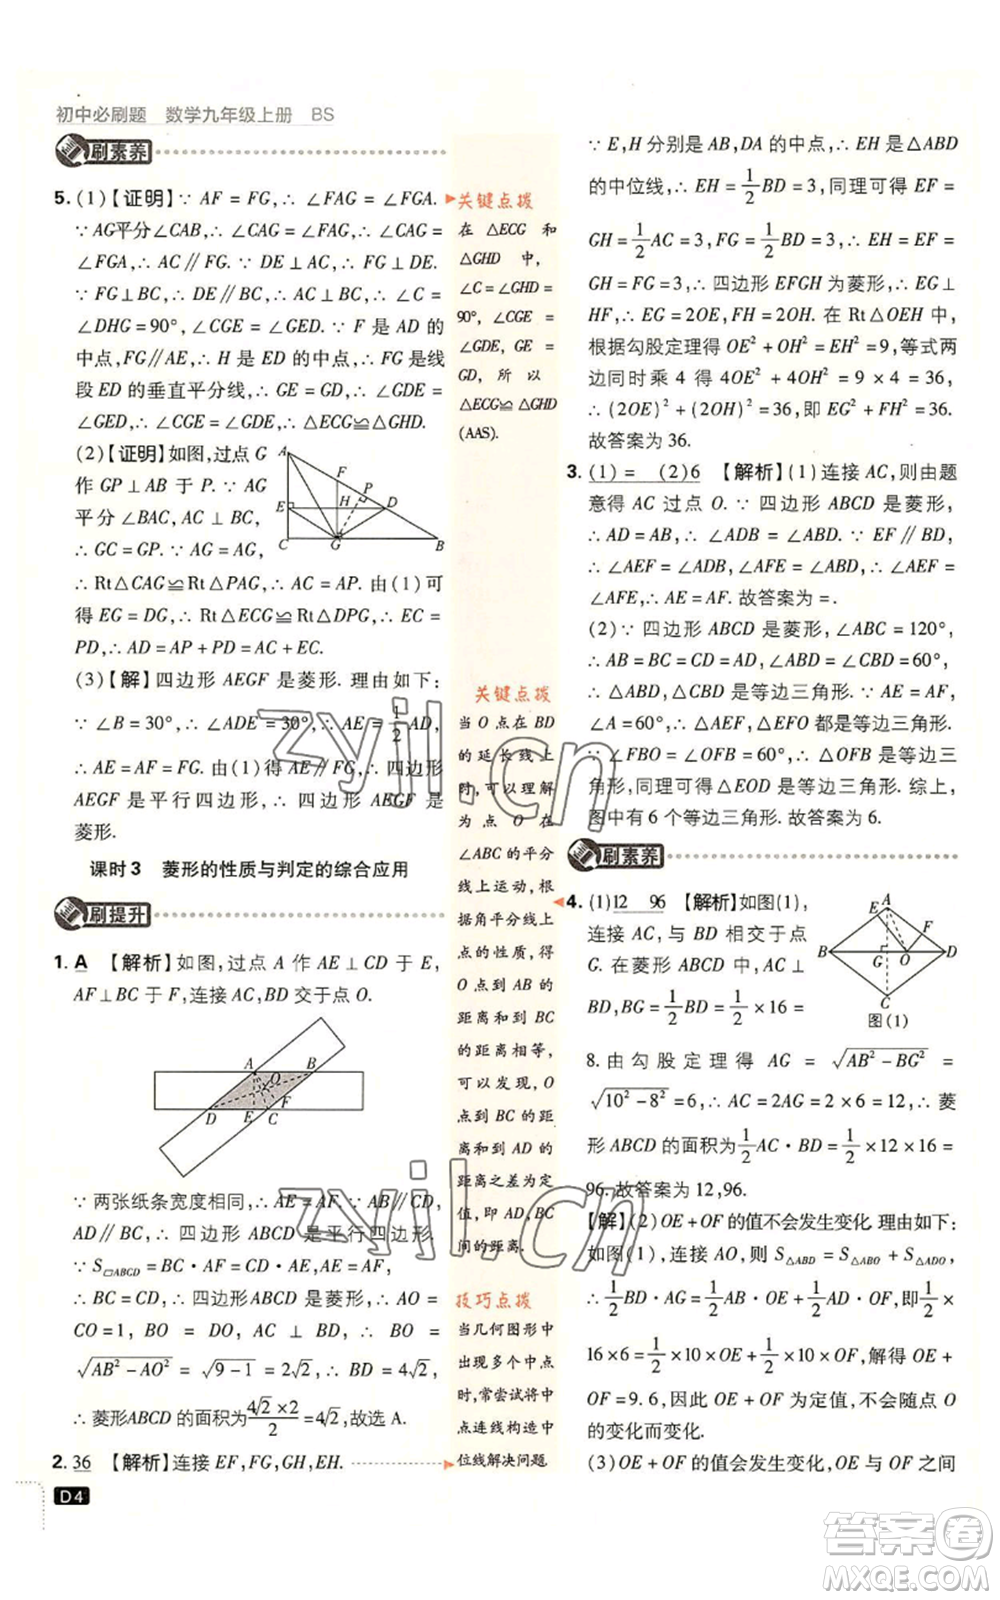 初中必刷题 数学九年级上册 BS
刷素养
5. (1)【证明】∵ AF = FG,∴ ∠FAG = ∠FGA.
∵ AG平分∠CAB,∴ ∠CAG = ∠FAG,∴ ∠CAG =
∠FGA,∴ AC∥FG. ∵ DE⊥AC,∴ FG⊥DE.
∵ FG⊥BC,∴ DE∥BC,∴ AC⊥BC,∴ ∠C =
∠DHG = 90°,∠CGE = ∠GED. ∵ F 是 AD 的
中点,FG∥AE,∴ H 是 ED 的中点,∴ FG是线
段 ED 的垂直平分线,∴ GE = GD,∴ ∠GDE =
∠GED,∴ ∠CGE = ∠GDE,∴ △ECG≌△GHD.
(2)【证明】如图,过点 G
作 GP⊥AB 于 P. ∵ AG
平分 ∠BAC, AC⊥BC,
∴ GC = GP. ∵ AG = AG,
∴ Rt△CAG≌Rt△PAG,∴ AC = AP. 由(1)可
得 EG = DG,∴ Rt△ECG≌Rt△DPG,∴ EC =
PD,∴ AD = AP + PD = AC + EC.
(3)【解】四边形 AEGF 是菱形. 理由如下:
∵ ∠B = 30°,∴ ∠ADE = 30°,∴ AE = 1/2 AD,
∴ AE = AF = FG. 由(1)得 AE∥FG,∴ 四边形
AEGF 是平行四边形,∴ 四边形 AEGF 是
菱形.
A
F
P
E
H
D
C
G
B
课时3 菱形的性质与判定的综合应用
刷提升
1. A 【解析】如图,过点 A 作 AE⊥CD 于 E,
AF⊥BC 于 F,连接 AC,BD 交于点 O.
A
B
O
D
E
C
F
∵ 两张纸条宽度相同,∴ AE = AF. ∵ AB∥CD,
AD∥BC,∴ 四边形 ABCD 是平行四边形.
∵ S▱ABCD = BC · AF = CD · AE, AE = AF,
∴ BC = CD,∴ 四边形ABCD是菱形,∴ AO =
CO = 1, BO = DO, AC⊥BD, ∴ BO =
√(AB² − AO²) = √(9 − 1) = 2√2,∴ BD = 4√2,
∴ 菱形ABCD 的面积为 (4√2 × 2)/2 = 4√2,故选 A.
2. 36 【解析】连接 EF,FG,GH,EH.
D4
关键点拨
在 △ECG 和
△GHD 中,
∠C = ∠GHD =
90°, ∠CGE =
∠GDE, GE =
GD, 所 以
△ECG≌△GHD
(AAS).
关键点拨
当 O 点在 BD
的延长线上
时,可以理解
为 点 O 在
∠ABC 的平分
线上运动,根
据角平分线上
点的性质,得
O 点到 AB 的
距离和到 BC
的距离相等,
可以发现,O
点到 BC 的距
离和到 AD 的
距离之差为定
值,即 AD,BC
间的距离.
技巧点拨
当几何图形中
出现多个中点
时,常尝试将中
点连线构造中
位线解决问题.
∵ E,H 分别为 AB,DA 的中点,∴ EH 是 △ABD
的中位线,∴ EH = 1/2 BD = 3,同理可得 EF =
GH = 1/2 AC = 3,FG = 1/2 BD = 3,∴ EH = EF =
GH = FG = 3,∴ 四边形 EFGH 为菱形,∴ EG⊥
HF,∴ EG = 2OE,FH = 2OH. 在 Rt△OEH 中,
根据勾股定理得 OE² + OH² = EH² = 9,等式两
边同时乘 4 得 4OE² + 4OH² = 9 × 4 = 36,
∴ (2OE)² + (2OH)² = 36,即 EG² + FH² = 36.
故答案为 36.
3. (1) = (2)6 【解析】(1)连接 AC,则由题
意得 AC 过点 O. ∵ 四边形 ABCD 是菱形,
∴ AD = AB,∴ ∠ADB = ∠ABD. ∵ EF∥BD,
∴ ∠AEF = ∠ADB,∠AFE = ∠ABD,∴ ∠AEF =
∠AFE,∴ AE = AF. 故答案为 = .
(2) ∵ 四边形 ABCD 是菱形,∠ABC = 120°,
∴ CB = CD = AD = AB,∠BCD = ∠A = 60°,
∴ △ABD,△CBD 是等边三角形. ∵ AE = AF,
∠A = 60°,∴ △AEF,△EFO 都是等边三角形.
∵ ∠FBO = ∠OFB = 60°,∴ △OFB 是等边三
角形,同理可得△EOD 是等边三角形. 综上,
图中有 6 个等边三角形. 故答案为 6.
刷素养
4. (1)12 96 【解析】如图(1),
连接 AC,与 BD 相交于点
G. 在菱形 ABCD 中,AC⊥
BD,BG = 1/2 BD = 1/2 × 16 =
8. 由 勾 股 定 理 得 AG = √(AB² − BG²) =
√(10² − 8²) = 6,∴ AC = 2AG = 2 × 6 = 12,∴ 菱
形 ABCD 的面积 = 1/2 AC · BD = 1/2 × 12 × 16 =
96. 故答案为 12,96.
【解】(2)OE + OF 的值不会发生变化. 理由如下:
如图(1),连接 AO,则 S△ABD = S△ABO + S△ADO,
∴ 1/2 BD · AG = 1/2 AB · OE + 1/2 AD · OF,即 1/2 ×
16 × 6 = 1/2 × 10 · OE + 1/2 × 10 · OF,解得 OE +
OF = 9. 6,因此 OE + OF 为定值,不会随点 O
的变化而变化.
(3)OE + OF 的值会发生变化,OE,OF 之间
E
A
F
B
G
O
D
C
图(1)
zyjl.cn
zyjl.cn
答案圈
MXQE.COM